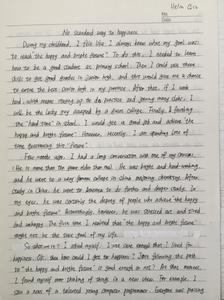 Helen Qin
No.
Date
No standard way to happiness
During my childhood, I felt like I always knew what my goal was:
to reach "the happy and bright future". To do this, I needed to learn
how to be a good student in primary school. Then I could use these
skills to get good grades in Junior high, and this would give me a chance
to enter the best Senior high in my province. After that, if I work
hard, which means staying up to do practice and joining many clubs, I
will be the lucky dog accepted by a dream college. Finally, I finishing
this "hard time" in I would get a good job and achieve the
happy and bright future. However, recently, I am spending lots of
time questioning this "future".
Few months ago, I had a long conversation with one of my
He is more than ten years older than me. He was bright and hard-working,
and he went to a very famous college in China studying chemistry. After
study in China, he went to America to do further and deeper study. In
my eyes, he was certainly the deputy of people who achieve the happy
and bright future. Astonishingly, however, he was stressed out and tired
and unhappy. The first time I realized that "the happy and bright future"
might not be the true goal of my life.
So what is it? I asked myself. I was sure enough that I lived for
happiness. OK, then how could I get to happiness? Does following the path
to "the happy and bright future" is good enough or not? At this moment,
I found myself some thinking of things in a new way. For example, I
saw a news of a talented young computer programmer. Everyone was praising